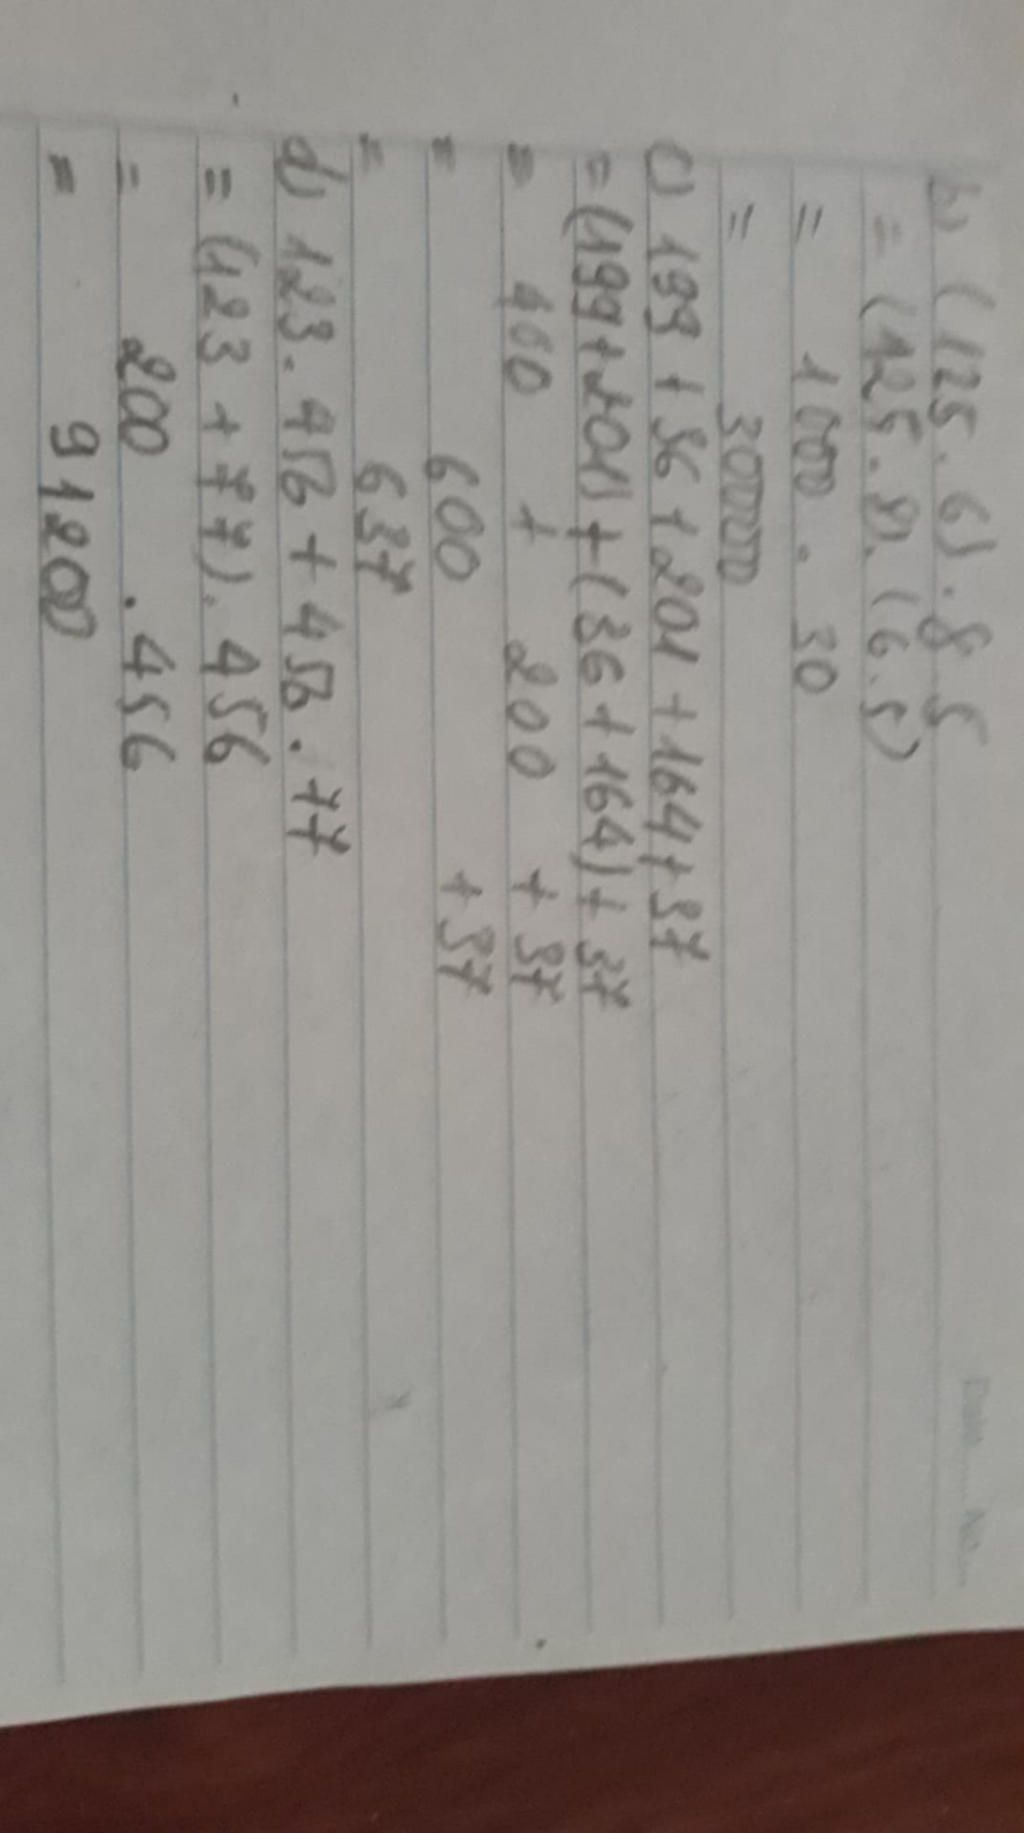 b) (125.6).8.5
= (125.8).(6.5)
= 1000.30
= 30000
c) 199 + 36 + 201 + 164 + 37
= (199 + 201) + (36 + 164) + 37
= 400 + 200 + 37
= 600 + 37
= 637
d) 123.456 + 456.77
= (123 + 77).456
= 200 .456
= 91200